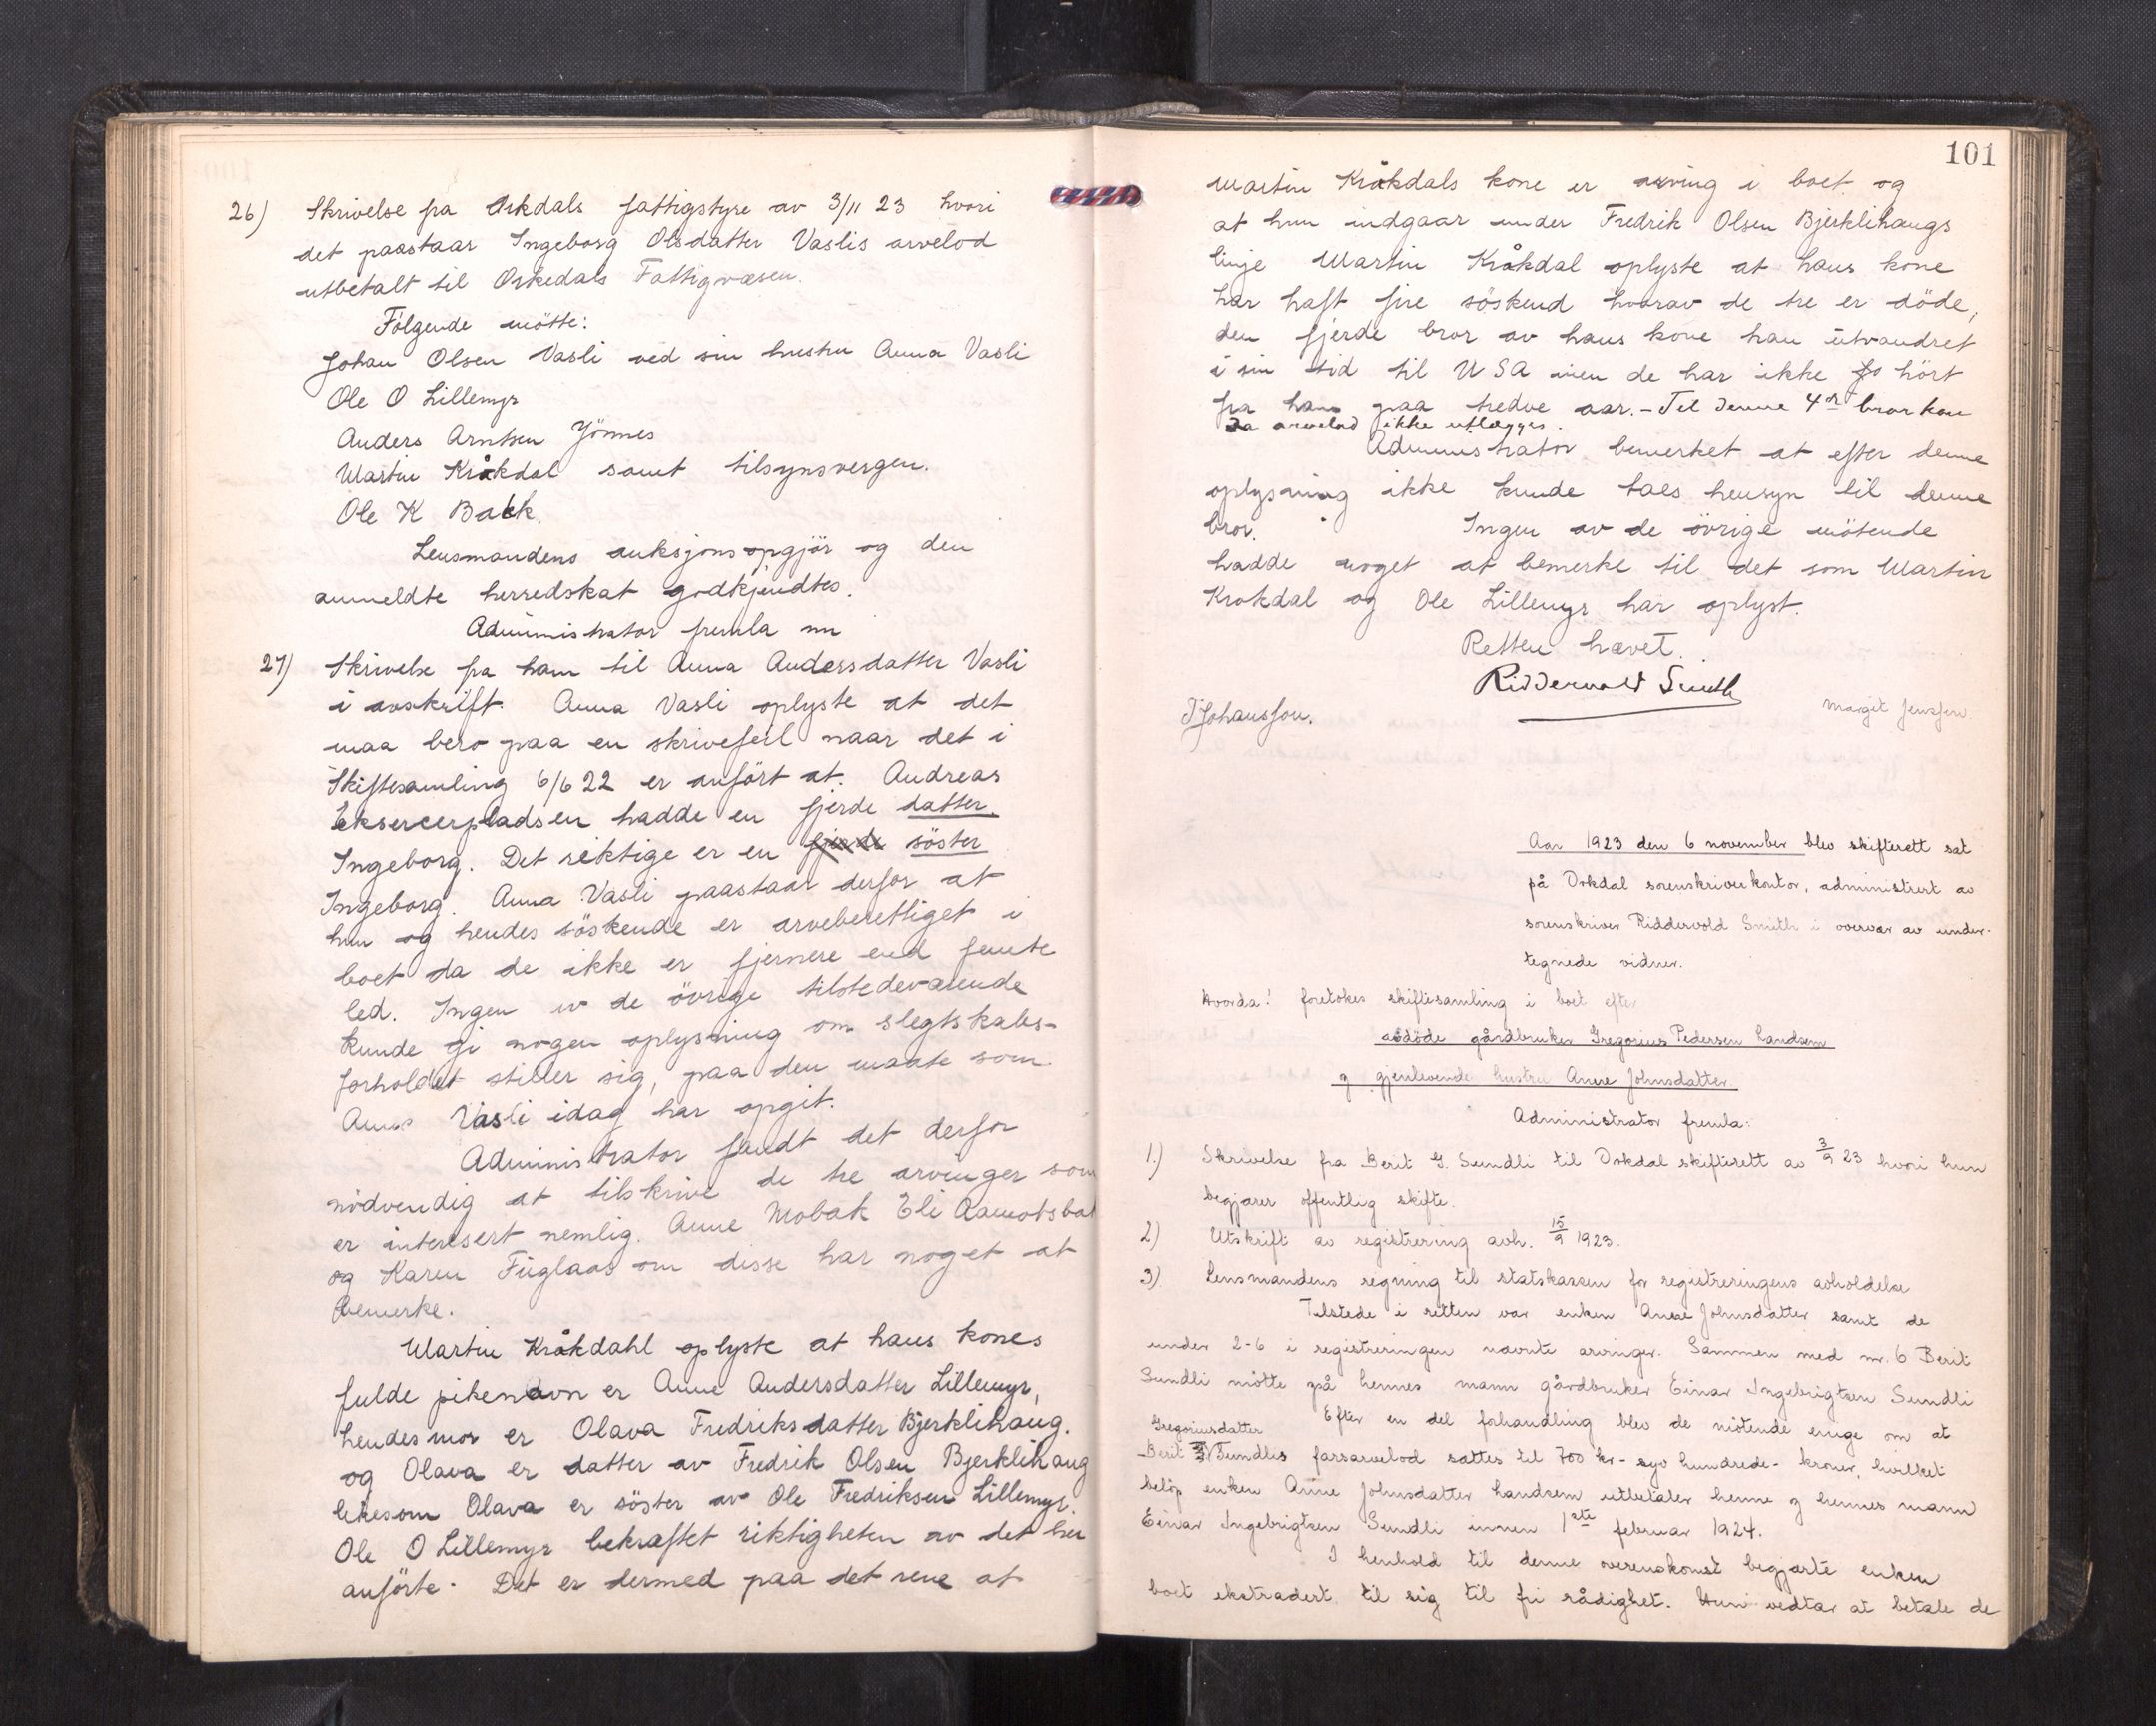 26) Skrivelse fra Orkdals fattigstyre av 3/11 23 hvori
det paastaar Ingeborg Olsdatter Vaslis arvelod
utbetalt til Orkedals Fattigvæsen.
Følgende mötte:
Johan Olsen Vasli ved sin hustru Anna Vasli
Ole O Lillemyr
Anders Arntsen Jönnes
Martin Kråkdal samt tilsynsvergen.
Ole K Bakk.
Lensmandens auksjonsopgjör og den
anmeldte herredskat godkjendtes.
Administrator fremla nu
27) Skrivelse fra ham til Anna Andersdatter Vasli
i avskrift. Anna Vasli oplyste at det
maa bero paa en skrivefeil naar det i
Skiftesamling 6/6 22 er anfört at. Andreas
Eksercerpladsen hadde en fjerde datter.
Ingeborg. Det riktige er en fjerde söster
Ingeborg. Anna Vasli paastaar derfor at
hun og hendes söskende er arveberettiget i
boet da de ikke er fjernere end femte
led. Ingen av de övrige tilstedeværende
kunde gi nogen oplysning om slegtskabs-
forholdet stiller sig, paa den maate som
Anna Vasli idag har opgit.
Administrator fandt det derfor
nödvendig at tilskrive de tre arvinger som
er interesert nemlig. Anne Mobak Eli Aamotsbak
og Karen Fuglaas om disse har noget at
bemerke.
Martin Kråkdahl oplyste at hans kones
fulde pikenavn er Anne Andersdatter Lillemyr,
hendes mor er Olava Fredriksdatter Bjerklihaug.
og Olava er datter av Fredrik Olsen Bjerklihaug
likesom Olava er söster av Ole Fredriksen Lillemyr.
Ole O Lillemyr bekræftet riktigheten av det her
anförte. Det er dermed paa det rene at
101
Martin Kråkdals kone er arving i boet og
at hun indgaar under Fredrik Olsen Bjerklihaugs
linje Martin Kråkdal oplyste at hans kone
har haft fire söskend hvorav de tre er döde,
den fjerde bror av hans kone han utvandret
i sin tid til USA men de har ikke hört
fra ham paa tredve aar. - Til denne 4de bror kan
da arvelod ikke utlægges.
Administrator bemerket at efter denne
oplysning ikke kunde taes hensyn til denne
bror. Ingen av de övrige mötende
hadde noget at bemerke til det som Martin
Krokdal og Ole Lillemyr har oplyst.
Retten hævet.
Riddervold Smith
T Johanssen. Margit Jenssen
Aar 1923 den 6 november blev skifterett sat
på Orkdal sorenskriverkontor, administrert av
sorenskriver Riddervold Smith i overvær av under-
tegnede vidner.
Hvorda! foretokes skiftesamling i boet efter
avdöde gårdbruker Gregorius Pedersen Landsem
og gjenlevende hustru Anne Johnsdatter.
Administrator fremla:
1.) Skrivelse fra Berit G. Sundli til Orkdal skifterett av 3/9 23 hvori hun
begjærer offentlig skifte.
2) Utskrift av registrering avh. 15/9 1923.
3) Lensmandens regning til statskassen for registreringens avholdelse
Tilstede i retten var enken Anne Johnsdatter samt de
under 2-6 i registreringen nævnte arvinger. Sammen med nr. 6 Berit
Sundli mötte på hennes mann gårdbruker Einar Ingebrigtsen Sundli
Efter en del forhandling blev de mötende enige om at
Gregoriusdatter
Berit Sundlis farsarvelod sattes til 700 kr - syv hundrede - kroner, hvilket
belöp enken Anne Johnsdatter Landsem utbetaler henne og hennes mann
Einar Ingebrigtsen Sundli innen 1ste februar 1924.
I henhold til denne overenskomst begjærte enken
boet ekstradert til sig til fri rådighet. Hun vedtar at betale de